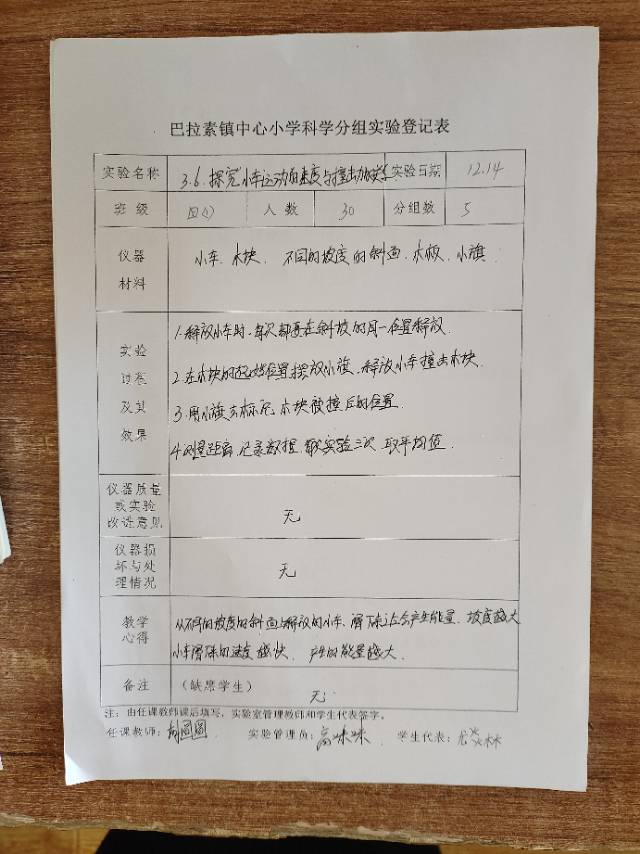 巴拉素镇中心小学科学分组实验登记表
实验名称 3.6.探究小车运动的速度与撞击 实验日期 12.14
班级 四(1) 人数 30 分组数 5
仪器材料 小车、木块、不同的坡度的斜面、木板、小旗
实验过程及其效果
1.释放小车时,每次都要在斜坡的同一位置释放.
2.在木块的起始位置摆放小旗、释放小车撞击木块.
3.用小旗去标记、木块被撞后的位置.
4.测量距离、记录数据、做实验三次 取平均值.
仪器质量或实验改进意见 无
仪器损坏与处理情况 无
教学心得 从不同的坡度的斜面上释放的小车、滑下来让会产生能量、坡度越大
小车滑下来的速度越快、产生的能量越大.
备注 (缺席学生) 无
注:由任课教师课后填写,实验室管理教师和学生代表签字。
任课教师: 实验管理员:高咪咪 学生代表: